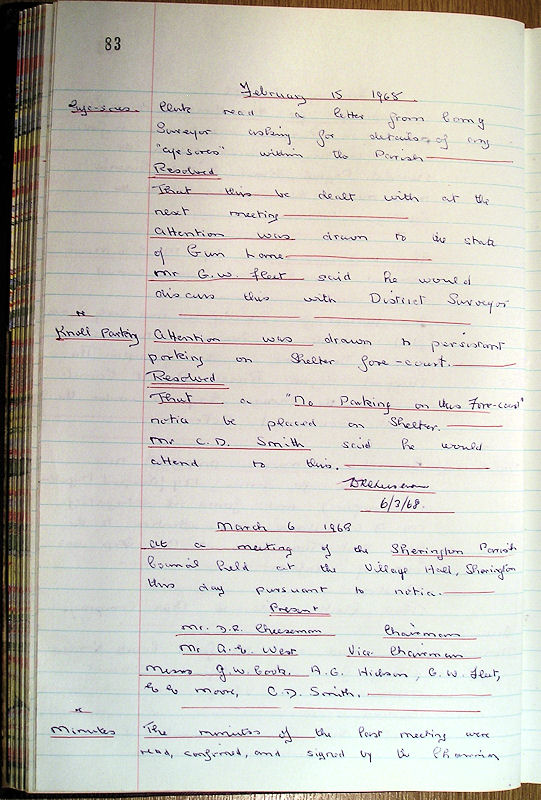 83
February 15 1968.
Eye-sores. Clerk read a letter from County
Surveyor asking for details of any
"eye sores" within the Parish
Resolved
That this be dealt with at the
next meeting
Attention was drawn to the state
of Gun Lane
Mr G.W. Fleet said he would
discuss this with District Surveyor
Knoll Parking Attention was drawn to persistant
parking on Shelter fore-court.
Resolved
That a "No Parking on this Fore-court"
notice be placed on Shelter.
Mr C.D. Smith said he would
attend to this.
D R Cheeseman
6/3/68.
March 6 1968
At a meeting of the Sherington Parish
Council held at the Village Hall, Sherington
this day pursuant to notice.
Present
Mr. D.R. Cheeseman Chairman
Mr A.E. West Vice Chairman
Messrs G.W. Cook, A.G. Hickson, G.W. Fleet,
Moore, C.D. Smith.
Minutes The minutes of the last meeting were
read, confirmed, and signed by the Chairman